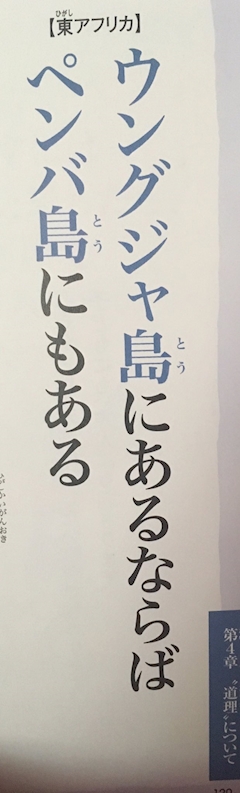 【東アフリカ】
ひがし
ウングジャ島にあるならば
とう
ペンバ島にもある
とう
第4章 〝道理〟について